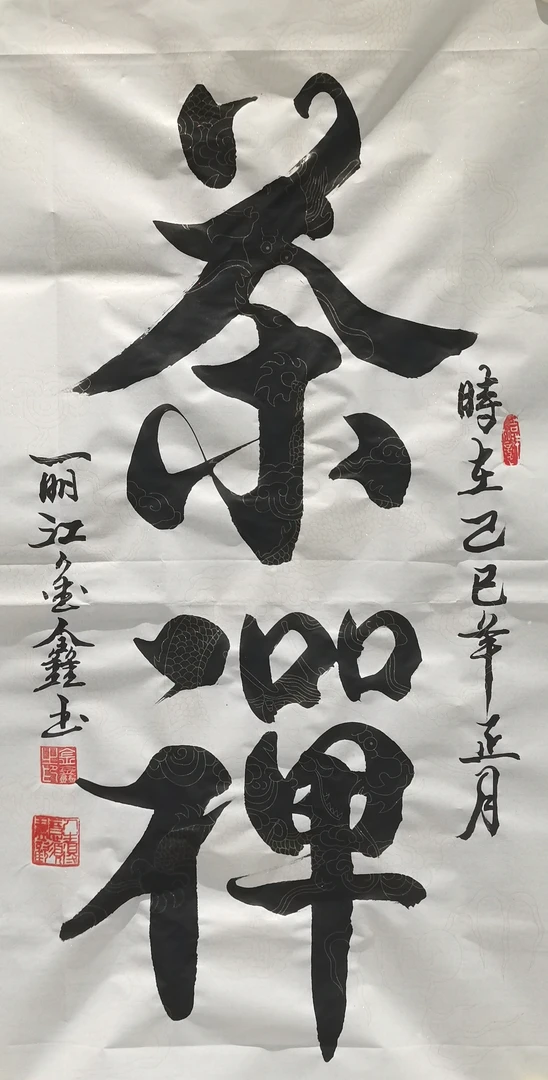 茶禪
時在己巳年正月
丽江金鑫玉